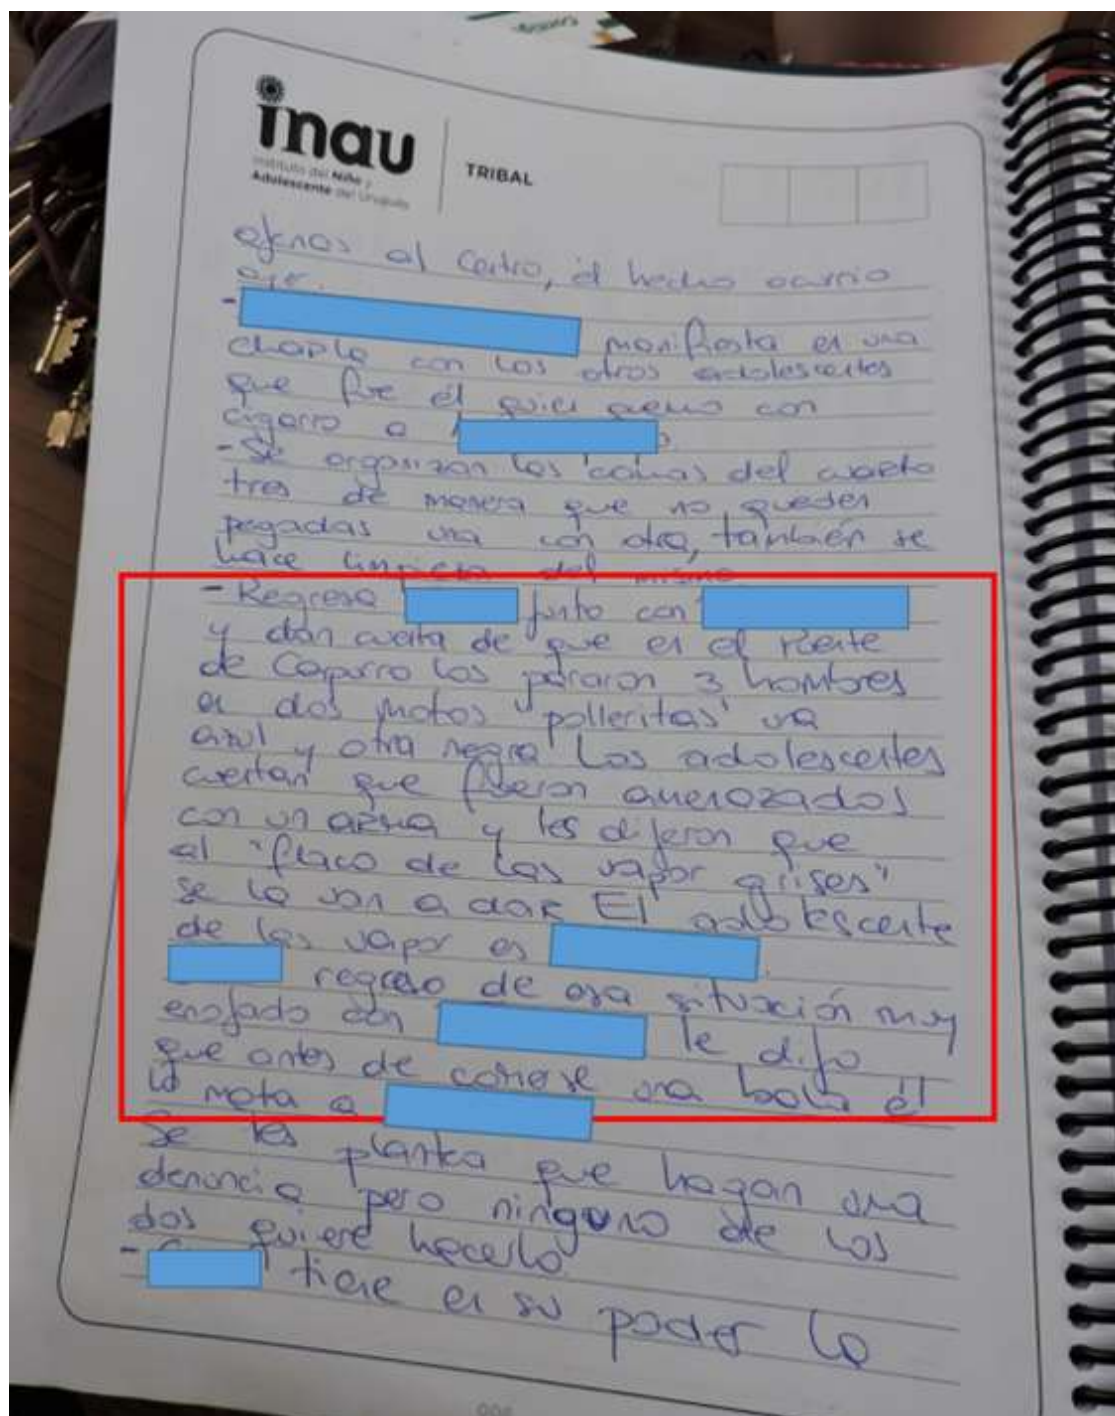 inau
Instituto del Niño y
Adolescente del Uruguay
TRIBAL
ajenos al Centro, el hecho ocurrio
ayer.
- manifiesta en una
charla con los otros adolescentes
que fue él quien quemo con
cigarro a
- Se organizan las camas del cuarto
tres de manera que no queden
pegadas una con otra, también se
hace limpieza del mismo
- Regresa junto con
y dan cuenta de que en el Puente
de Caparro los pararon 3 hombres
en dos motos "polleritas" una
azul y otra negra Los adolescentes
cuentan que fueron amenazados
con un arma y les dijeron que
al "flaco de las vapor grises"
se la van a dar El adolescente
de las vapor es
regreso de esa situación muy
enojado con le dijo
que antes de comerse una bala él
lo mata a
Se les plantea que hagan una
denuncia pero ninguno de los
dos quiere hacerlo
- tiene en su poder la